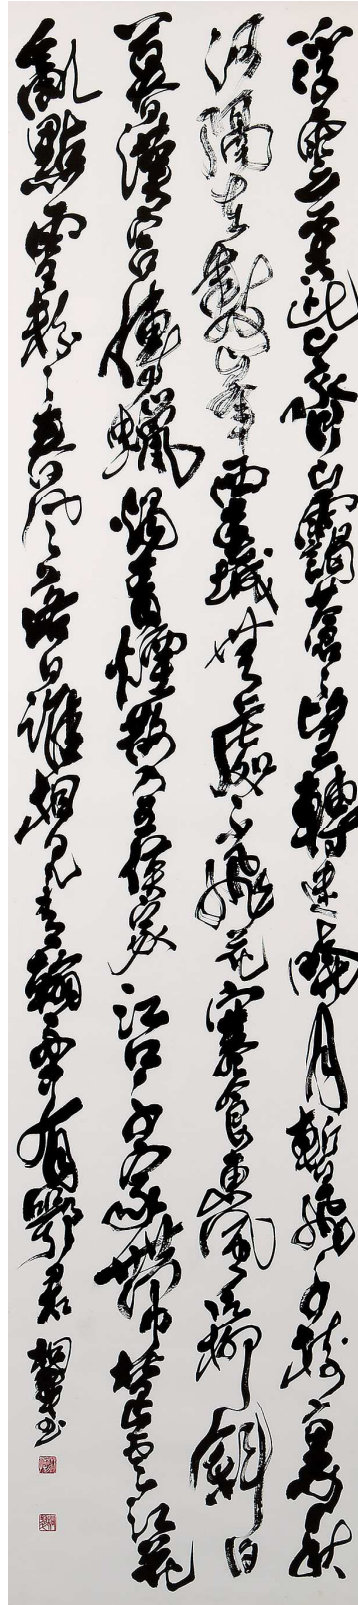 浮雲不共此山齊山靄蒼々望轉迷曉月暫飛千樹裏秋
河隔在數峯西春城無處不飛花寒食東風御柳斜日
暮漢宮傳蠟燭青煙散入五侯家江口千家帶楚雲江花
亂點雪紛々春風落日誰相見青翰舟中有鄂君